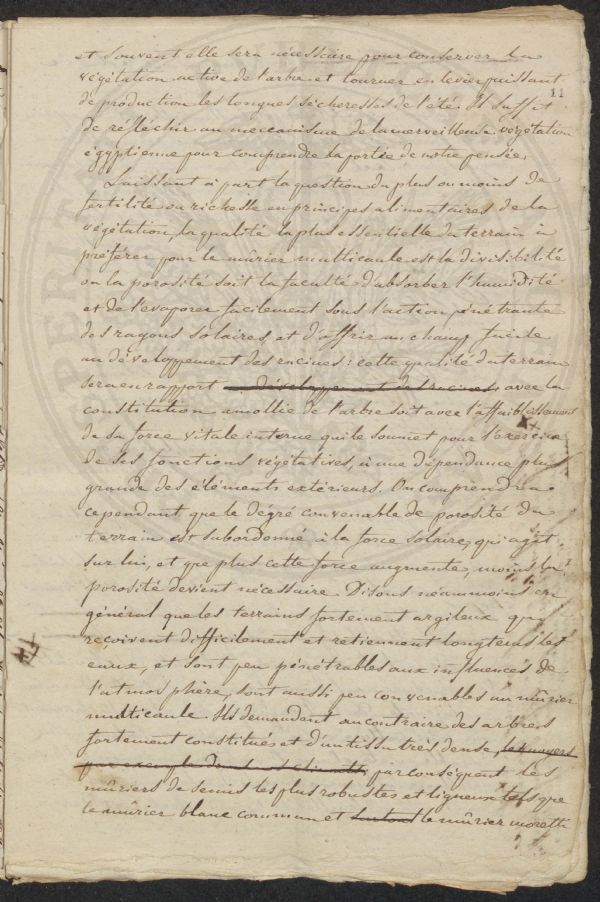 et souvent elle sera nécessaire pour conserver la
végétation active de l'arbre et tourner en levier puissant
11
de production les longues sécheresses de l'été. Il suffit
de réfléchir au meccanisme de la merveilleuse végétation
égyptienne pour comprendre la portée de notre pensée.
Laissant à part la question du plus ou moins de
fertilité ou richesse en principes alimentaires de la
végétation, la qualité la plus essentielle du terrain à
préférer pour le mûrier multicaule est la divisibilité
ou la porosité soit la faculté d'absorber l'humidité
et de l'évaporer facilement sous l'action pénétrante
des rayons solaires, et d'offrir un champ facile
au développement des racines: cette qualité du terrain
sera en rapport développement des racines avec la
constitution amollie de l'arbre soit avec l'affaiblissement
de sa force vitale interne qui le soumet pour l'exercice
de ses fonctions végétatives, à une dépendance plus
grande des éléments extérieurs. On comprendra
cependant que le dégré convenable de porosité du
terrain est subordonné à la force solaire, qui agit
sur lui, et que plus cette force augmente, moins la
porosité devient nécessaire. Disons néammoins en
général que les terrains fortement argileux qui
reçoivent difficilement et retiennent longtems les
eaux, et sont peu pénétrables aux influences de
l'atmosphère, sont aussi peu convenables au mûrier
multicaule. Ils demandent au contraire des arbres
fortement constitués et d'un tissu très dense, les noyers
par exemple par conséquent les
mûriers de semis les plus robustes et ligneux tels que
le mûrier blanc commun et surtout le mûrier moretti